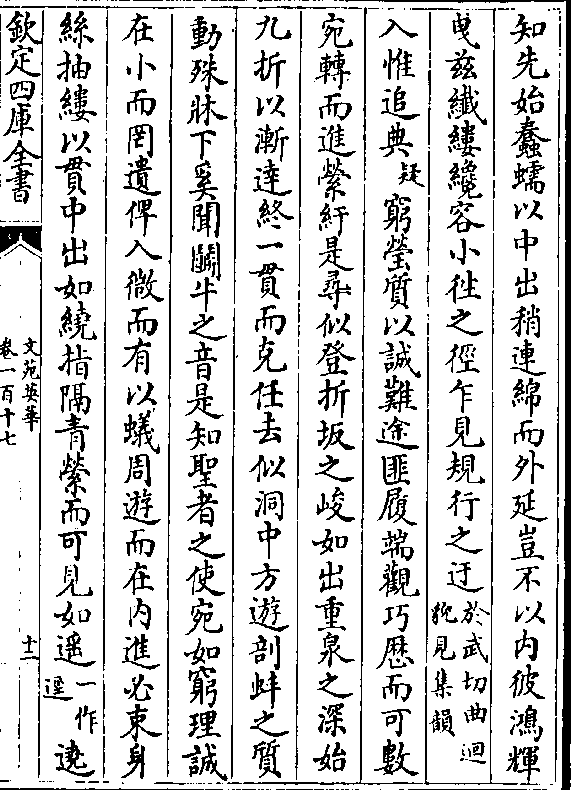 知先始蠢蠕以中出稍連綿而外延豈不以内彼鴻輝
曵兹纎縷纔容小徃之徑乍見規行之迂於武切曲迴貎見集韻
入惟追典疑窮瑩質以誠難途匪履端觀巧歴而可數
宛轉而進縈紆是尋似登折坂之峻如出重泉之深始
九折以漸逹終一貫而克任去似洞中方遊剖蚌之質
動殊牀下奚聞鬭牛之音是知聖者之使宛如窮理誠
在小而罔遺俾入微而有以蟻周遊而在内進必束身
絲抽縷以貫中出如繞指隔青縈而可見如遥一作遥遶
欽定四庫全書
文苑英華
卷一百十七
十二